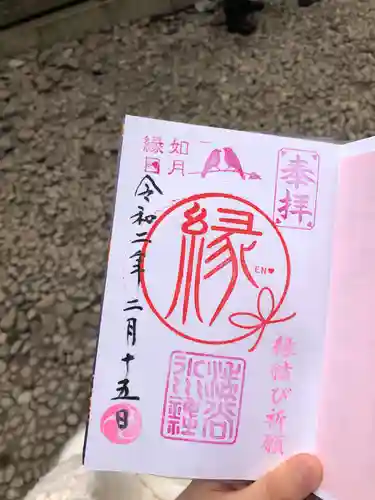 奉拝
如月
縁日
縁
EN
縁結び祈願
渋谷氷川神社
令和二年二月十五日